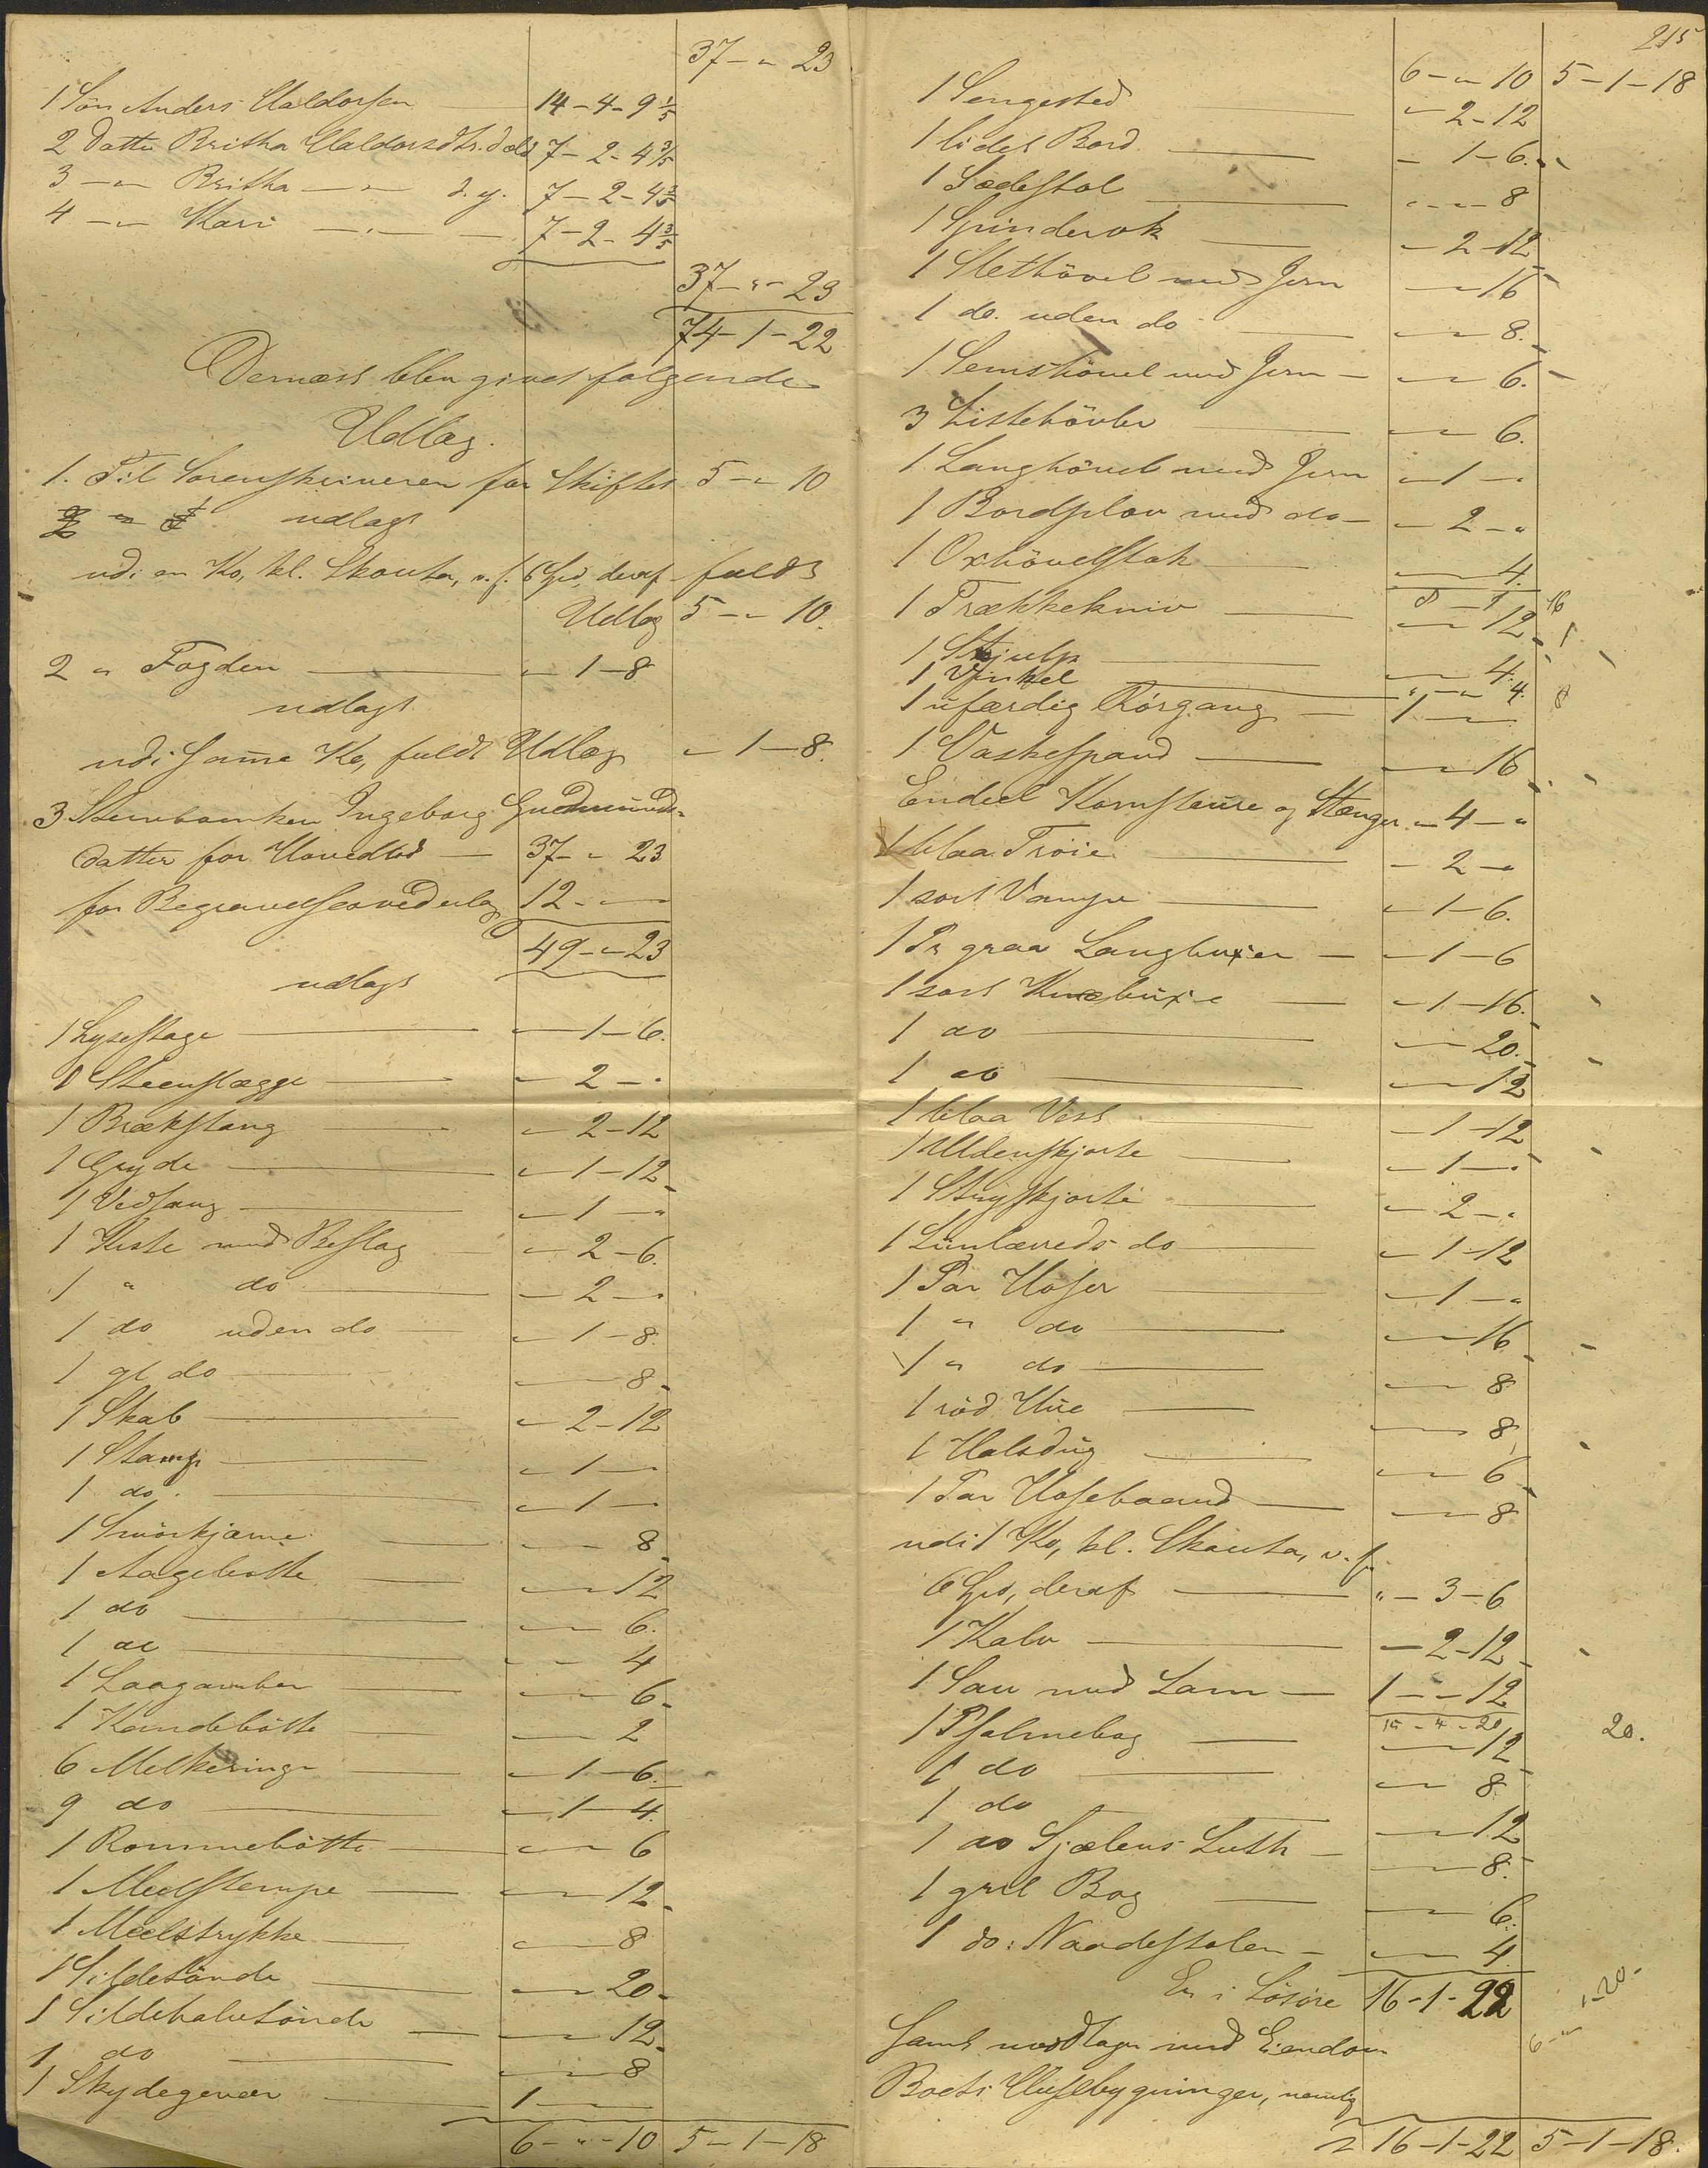 37 - " 23
1 Søn Anders Haldorsen 14-4-9 1/5
2 Datter Britha Haldorsdtr. d. æld 7-2-4 3/5
3 -"- Britha -"- d. y. 7-2-4 3/5
4 -"- Kari -"- 7-2-4 3/5
37-"-23
74-1-22
Dernæst blev givet følgende
Udlæg.
1. Til Sorenskriveren for Skiftet 5-"-10
udlagt
udi en Ko, kl. Skauta, v. f. 6 Spd, deraf fuldt
Udlæg 5-"-10.
2 " Fogden "-1-8
udlagt
udi samme Ko, fuldt Udlæg "-1-8.
3 Sterboenken Ingeborg Gudmunds-
datter for Hovedlod 37-"-23
for Begravelsesvederlag 12-"-"
49-"-23
udlagt
1 Lysestage "-1-6.
1 Steenslægge "-2-"
1 Brækstang "-2-12
1 Gryde "-1-12
1 Vedsaug "-1-"
1 Kiste med Beslag "-2-6.
1 " do "-2-"
1 do uden do "-1-8.
1 gl do "-"-8
1 Skab "-2-12
1 Stamp "-1-"
1 do. "-1-"
1 Smörkjærne "-"-8
1 Aagebøtte "-"-12
1 do "-"-6.
1 do "-"-4
1 Laagamber "-"-6
1 Kandebötte "-"-2
6 Melkeringe "-1-6.
9 do "-1-4
1 Rommebötte "-"-6
1 Meelstempe "-"-12
1 Meelstrykke "-"-8
1 Sildetönde "-"-20
1 Sildehalvtönde "-"-12
1 do "-"-8
1 Skydegevær 1-"-"
6-"-10 5-1-18
215
6-"-10 5-1-18
1 Sengested "-2-12
1 lidet Bord "-1-6.
1 Sædestol "-"-8
1 Spinderok "-2-12
1 Slethövel med Jern "-"-16
1 do. uden do "-"-8.
1 Semshövel med Jern "-"-6.
3 Listehövler "-"-6.
1 Langhövel med Jern "-1-"
1 Bordplov med do "-2-"
1 Oxhövelstok "-"-4.
1 Trækkekniv "-"-12
1 Skjulp "-"-4.
1 Vinkel "-"-4.
1 ufærdig Rörgang 1-"-"
1 Vaskespand "-"-16
Endeel Kornstaure og Stænger "-4-"
1 blaa Tröie "-2-"
1 sort Vampe "-1-6.
1 Pr graa Langbuxer "-1-6
1 sort Knæbuxe "-1-16.
1 do "-"-20.
1 do "-"-12
1 blaa Vest "-1-12
1 Uldenskjorte "-1-"
1 Stryskjorte "-2-"
1 Linlærreds do "-1-12
1 Par Hoser "-1-"
1 " do "-"-16
1 " do "-"-8
1 röd Hue "-"-8
1 Halsdug "-"-6
1 Par Hosebaand "-"-8
udi 1 Ko, kl. Skauta, v. f.
6 Spd, deraf "-3-6
1 Kalv "-2-12
1 Sau med Lam 1-"-12
15-4-20
20.
1 Psalmebog "-"-12
1 do "-"-8
1 do "-"-12
1 do Sjælens Luth "-"-8.
1 gml Bog "-"-6.
1 do: Naadestolen "-"-4
Er i Lösöre 16-1-22
1-20.
Samt modtager med Eiendom
Boets Huusbygninger, nemlig
16-1-22 5-1-18.